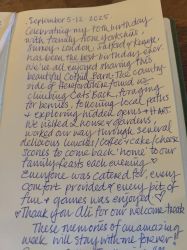 September 5-12 2025
Celebrating my 70th birthday
with family from Yorkshire,
Surrey, London, Salford & Kendal
has been the best birthday ever.
We've all enjoyed sharing this
beautiful Barn. The country
side of Herefordshire found us
climbing foraging
for berries, following local paths
& exploring hidden gems
We visited houses & gardens,
worked our way through several
delicious lunches, coffee & cake (cheese
scones) to come back 'home' to our
family feasts each evening.
Everyone was catered for, every
comfort provided & every bit of
fun & games was enjoyed
Thank you Ali for our welcome treats
These memories of an amazing
week will stay with me forever